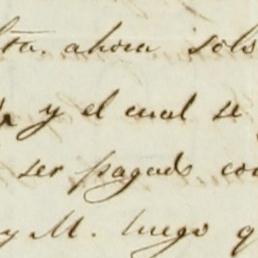 lta. ahora solo
y el cual se
ser pagado con
y M. luego q